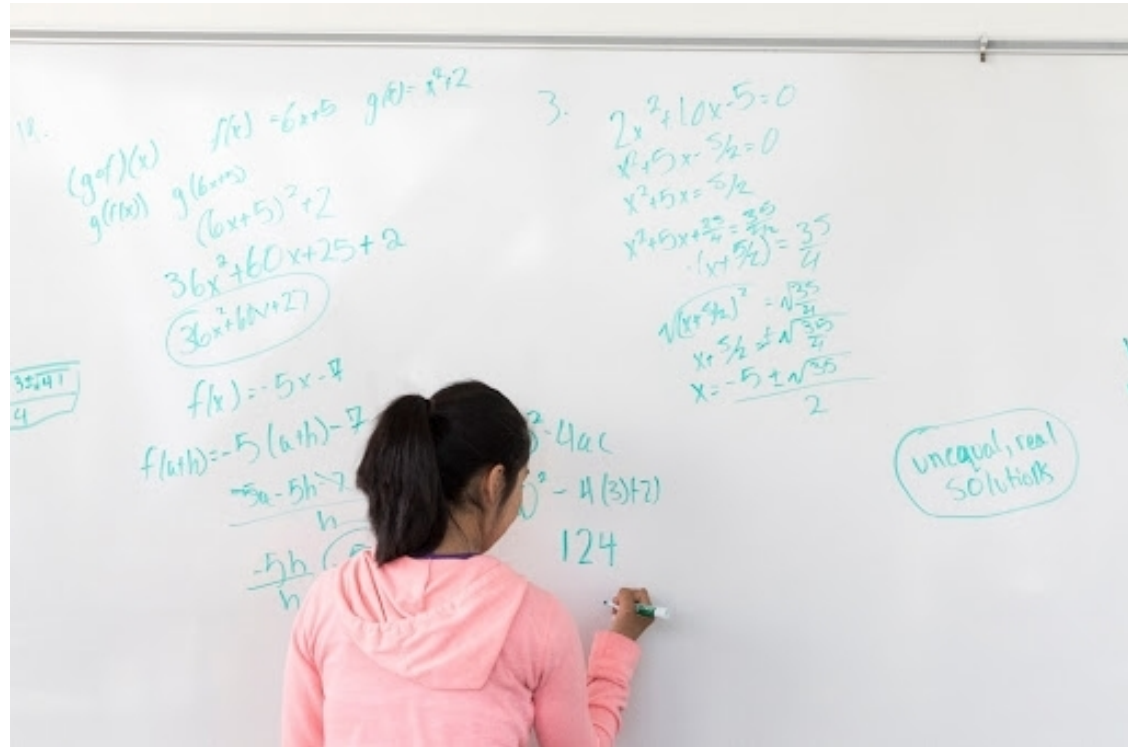 18.
(g∘f)(x) f(x) = 6x+5 g(x) = x²+2
g(f(x)) g(6x+5)
(6x+5)²+2
36x²+60x+25+2
36x²+60x+27
f(x)=-5x-7
f(a+h)=-5(a+h)-7
-5a-5h-7
h
-5h
h
3±√41
4
3. 2x²+10x-5=0
x²+5x-5/2=0
x²+5x=5/2
x²+5x+25/4=35/4
(x+5/2)=35/4
√(x+5/2)²=√35/4
x+5/2=±√35/4
x=-5±√35
2
²-4ac
)²-4(3)(-7)
124
unequal, real
solutions